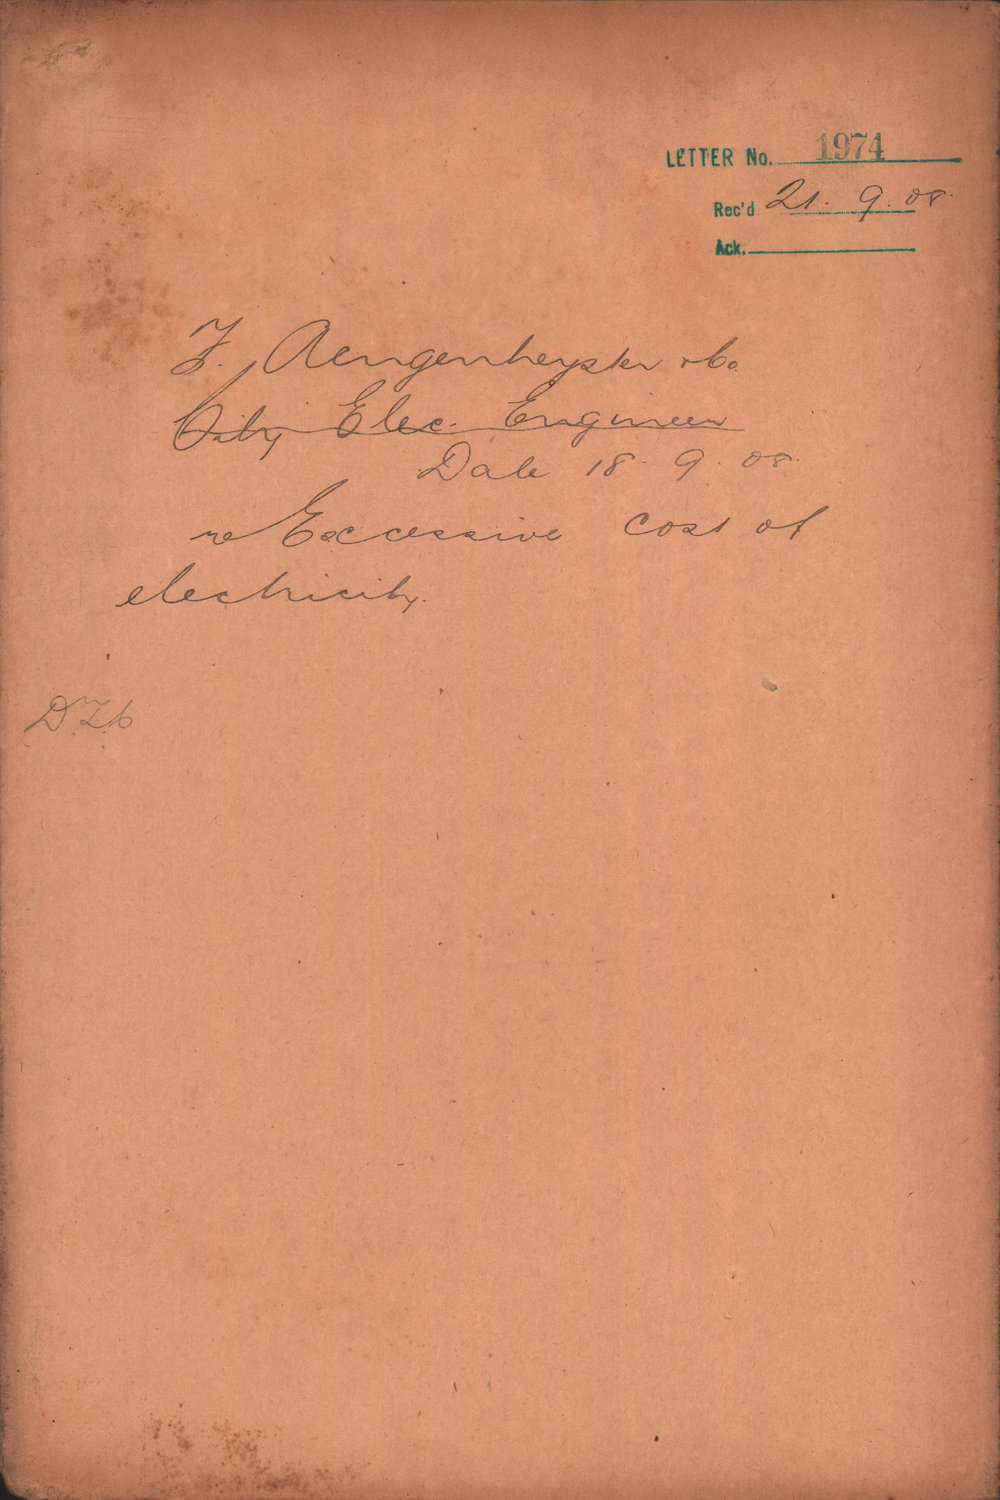 LETTER No. 1974
Rec'd 21. 9. 08.
Ack.
F. Aengenheyster & Co
City Elec. Engineer
Date 18. 9. 08.
re Excessive cost of
electricity.